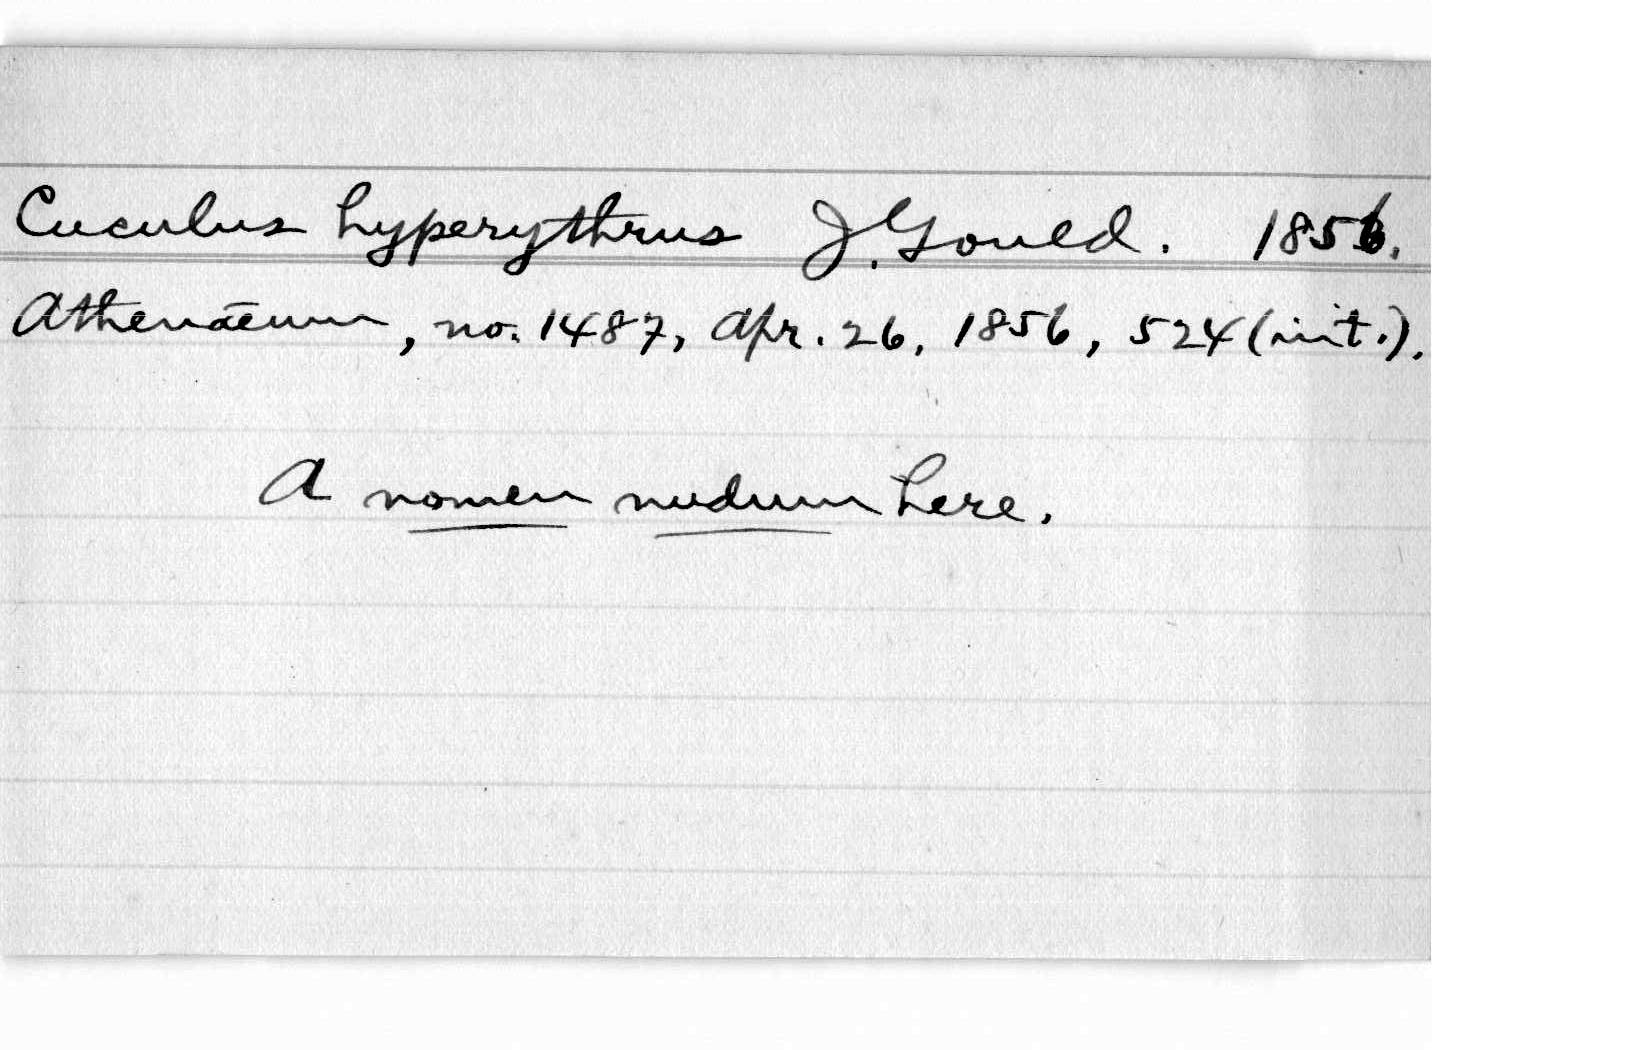 Cuculus hyperythrus J. Gould. 1856.
Athenaeum, no. 1487, Apr. 26, 1856, 524 (init.).
A nomen nudum here.